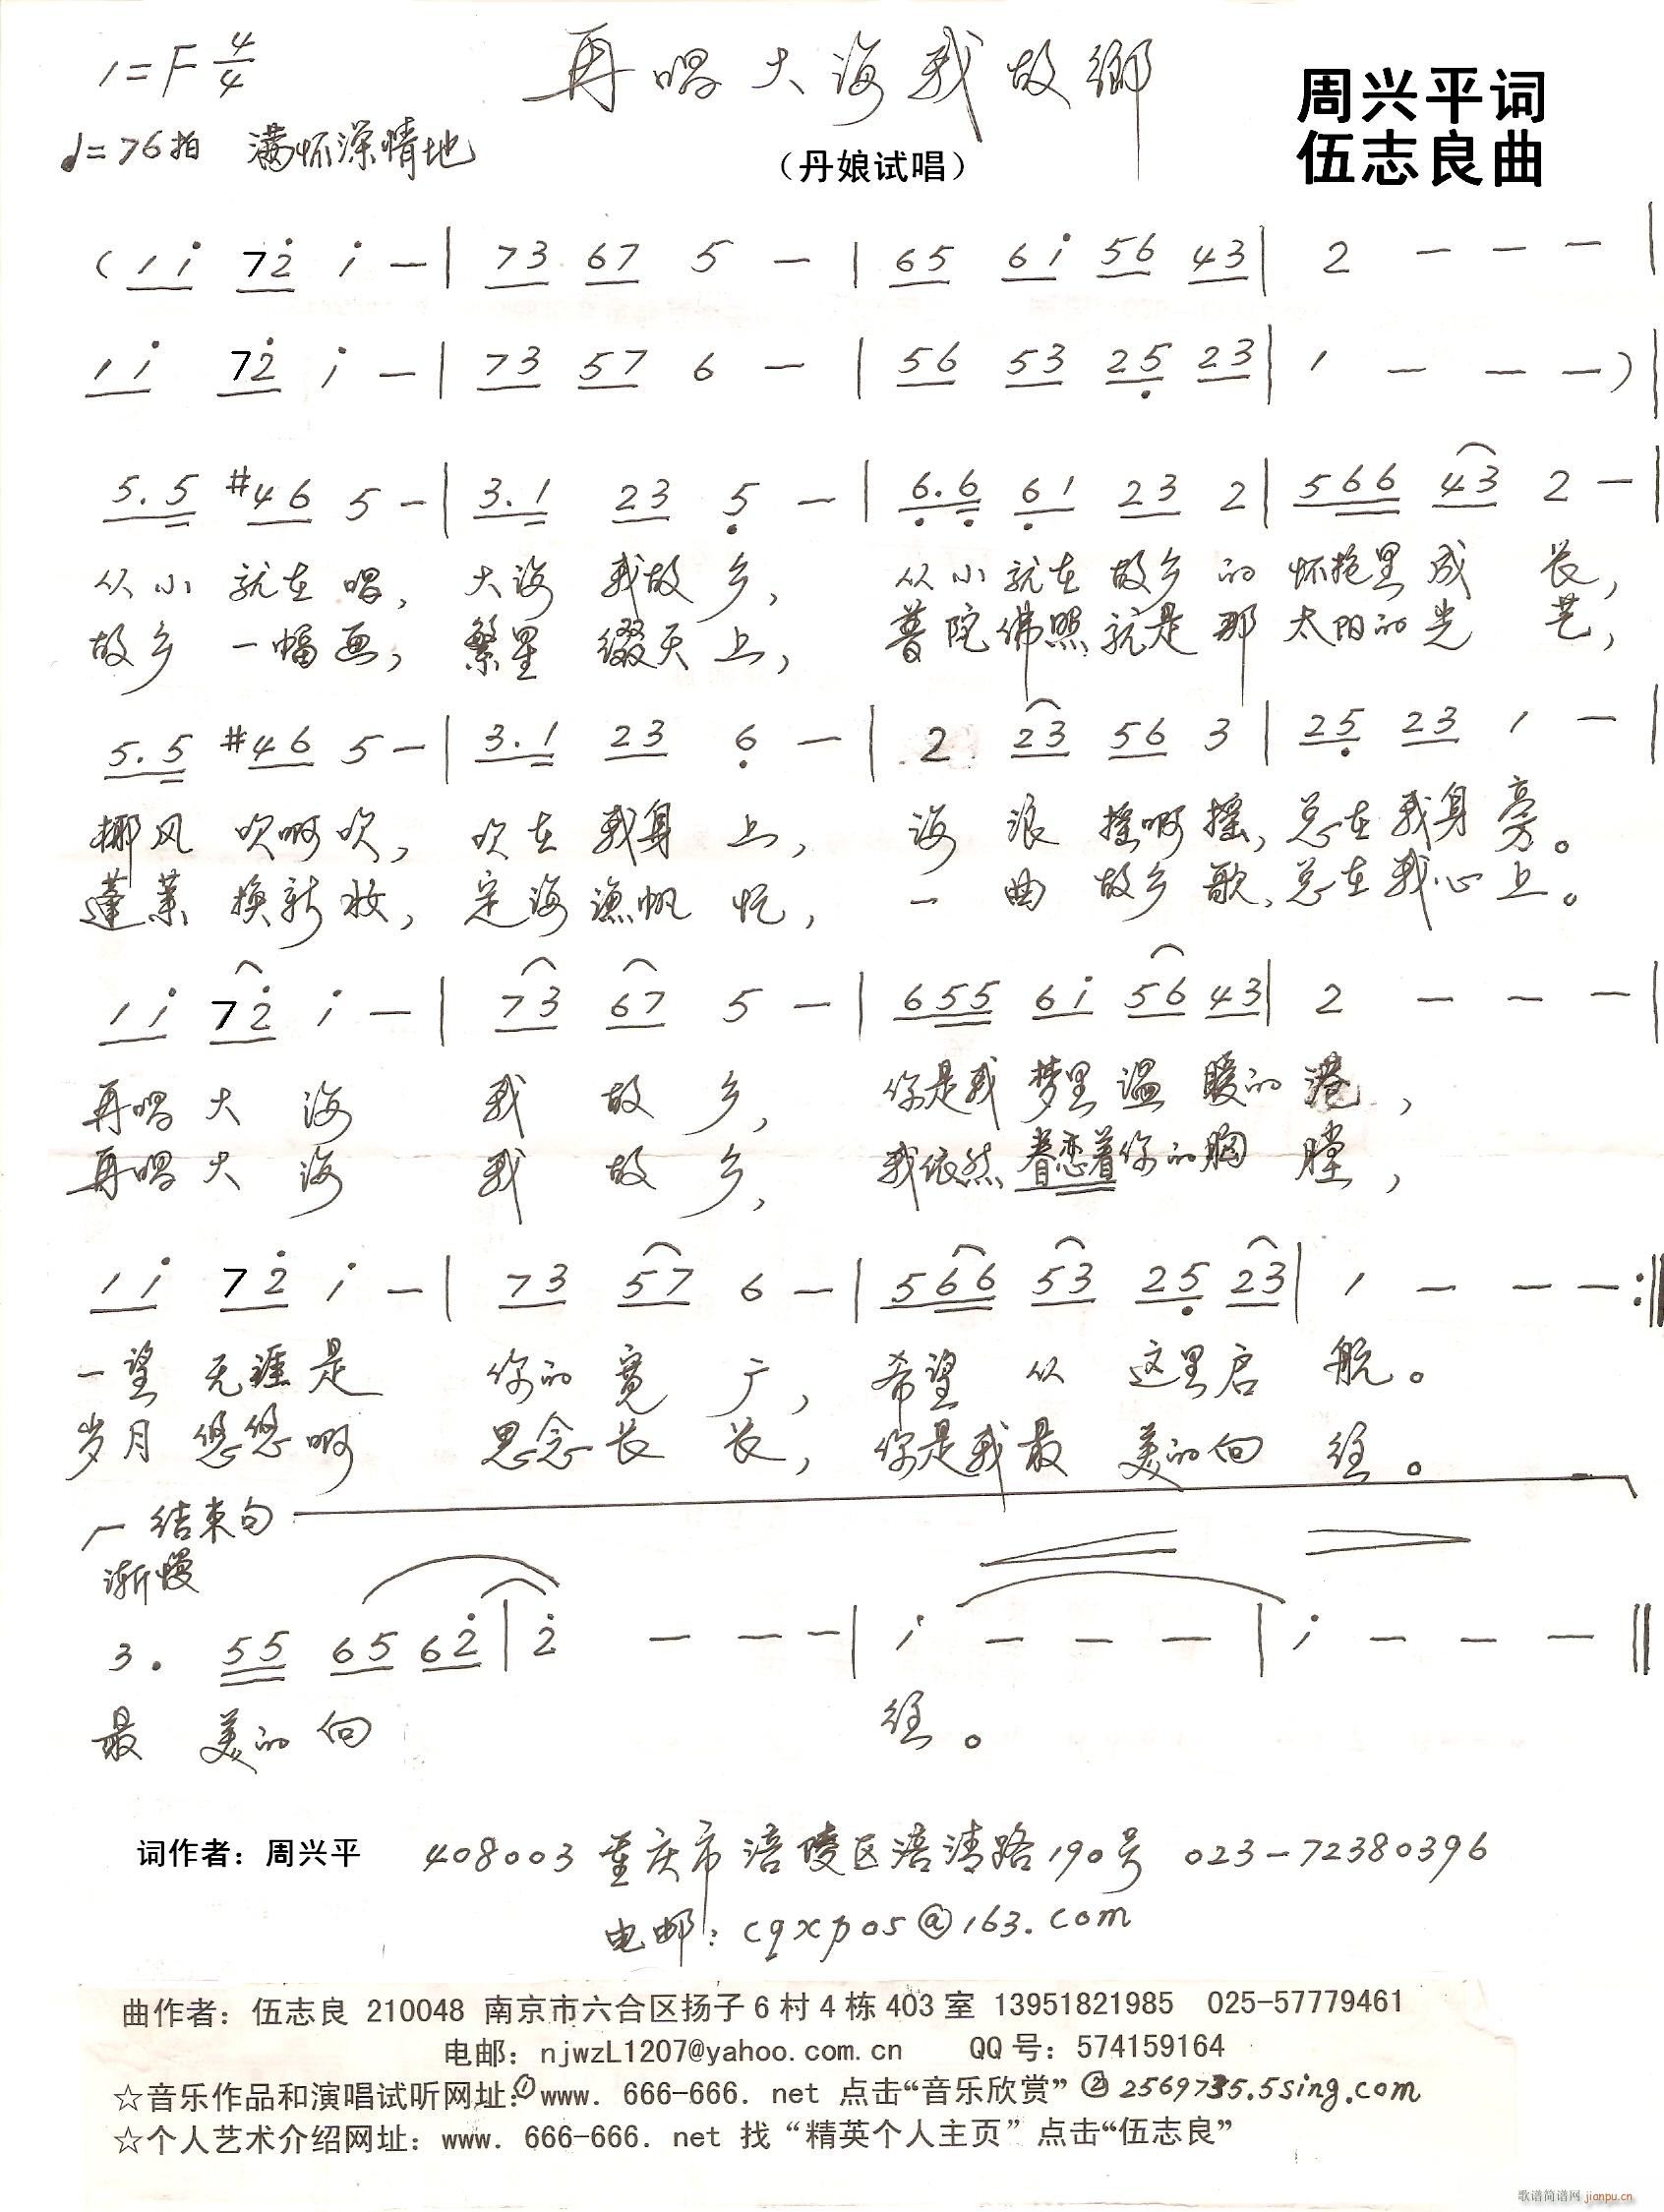 1=F 4/4
再唱大海我故鄉
周兴平词
♩=76拍 满怀深情地
（丹娘试唱）
伍志良曲
( 1 i̇ 7 2̇ i̇ — | 7 3 6 7 5 — | 6 5 6 i̇ 5 6 4 3 | 2 — — — |
1 i̇ 7 2̇ i̇ — | 7 3 5 7 6 — | 5 6 5 3 2 5̣ 2 3 | 1 — — — ) |
5. 5 #4 6 5 — | 3. 1 2 3 5̣ — | 6̣. 6̣ 6̣ 1 2 3 2 | 5 6 6 4 3 2 — |
从小就在唱，大海我故乡，从小就在故乡的怀抱里成长，
故乡一幅画，繁星缀天上，普陀佛照就是那太阳的光芒，
5. 5 #4 6 5 — | 3. 1 2 3 6̣ — | 2 2 3 5 6 3 | 2 5̣ 2 3 1 — |
椰风吹啊吹，吹在我身上，海浪摇啊摇，总在我身旁。
蓬莱换新妆，定海渔帆忙，一曲故乡歌，总在我心上。
1 i̇ 7 2̇ i̇ — | 7 3 6 7 5 — | 6 5 5 6 i̇ 5 6 4 3 | 2 — — — |
再唱大海我故乡，你是我梦里温暖的港，
再唱大海我故乡，我依然眷恋着你的胸膛，
1 i̇ 7 2̇ i̇ — | 7 3 5 7 6 — | 5 6 6 5 3 2 5̣ 2 3 | 1 — — — :‖
一望无涯是你的宽广，希望从这里启航。
岁月悠悠啊思念长长，你是我最美的向往。
结束句
渐慢
3. 5 5 6 5 6 2̇ | 2̇ — — — | i̇ — — — | i̇ — — — ‖
最美的向往。
词作者：周兴平 408003 重庆市涪陵区涪清路190号 023-72380396
电邮：cqxp05@163.com
曲作者：伍志良 210048 南京市六合区扬子6村4栋403室 13951821985 025-57779461
电邮：njwzL1207@yahoo.com.cn QQ号：574159164
☆音乐作品和演唱试听网址：①www. 666-666. net 点击“音乐欣赏” ②2569735.5sing.com
☆个人艺术介绍网址：www. 666-666. net 找“精英个人主页”点击“伍志良”
歌谱简谱网 jianpu.cn